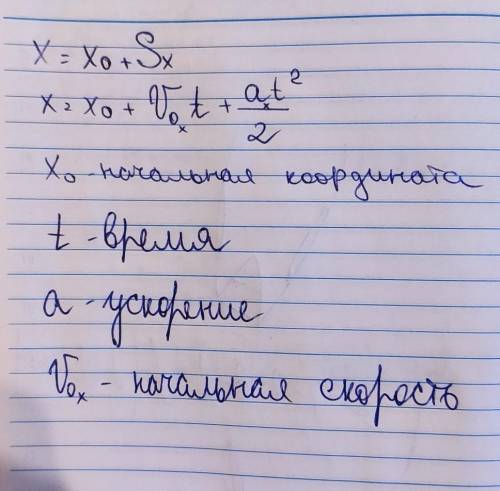 x = x₀ + Sx
x = x₀ + V₀ₓt + aₓt²/2
x₀ - начальная координата
t - время
a - ускорение
V₀ₓ - начальная скорость